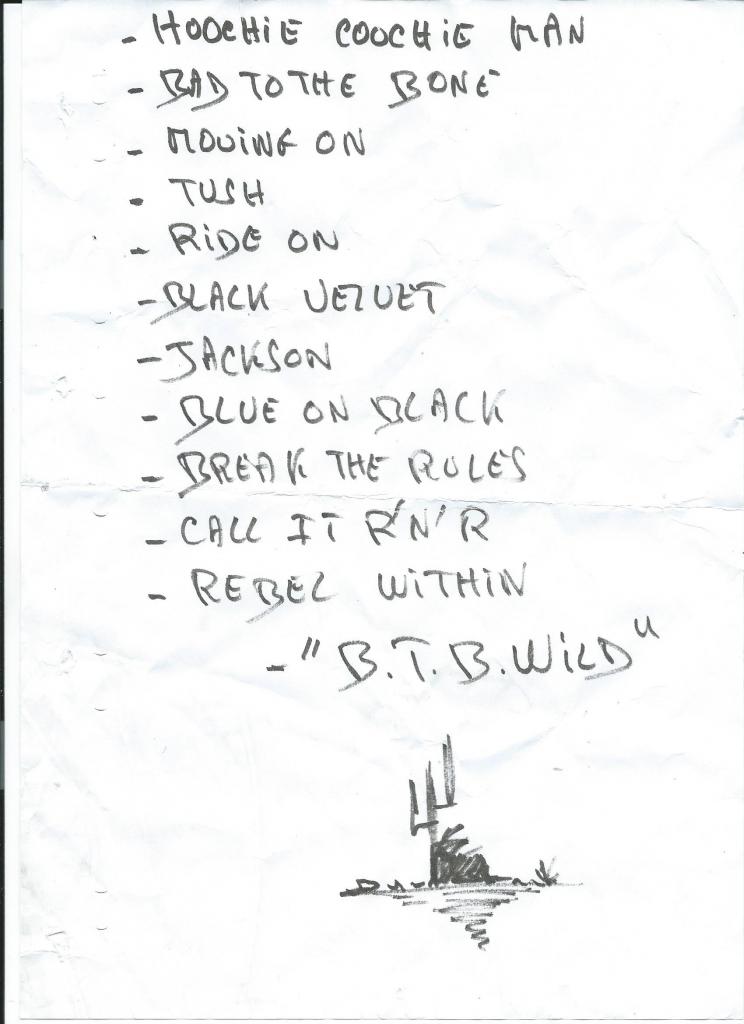 - HOOCHIE COOCHiE MAN
- BAD TO THE BONE
- MOViNG ON
- TUSH
- RiDE ON
- BLACK VELVET
- JACKSON
- BLUE ON BLACK
- BREAK THE RULES
- CALL IT R'N'R
- REBEL WiTHiN
- "B.T.B.WiLD"